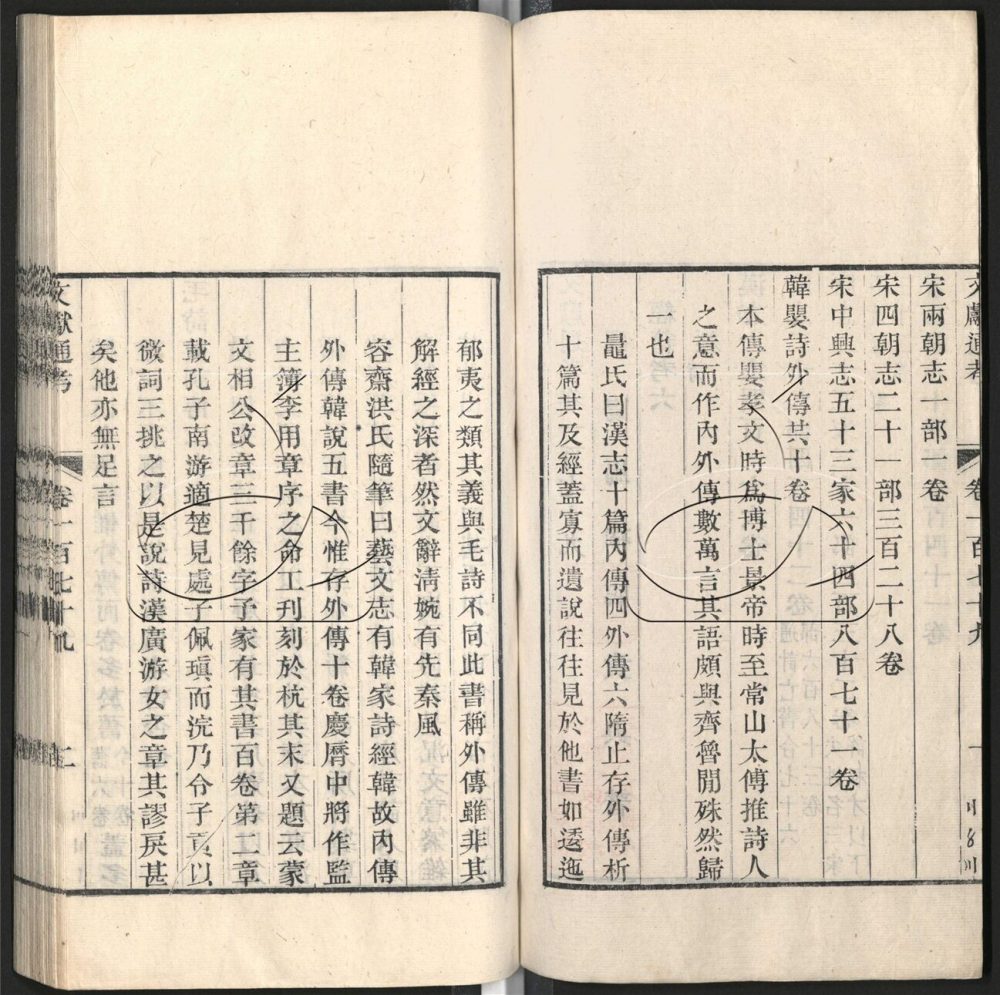 文獻通考 卷一百七十九
宋兩朝志一部一卷
宋四朝志二十一部三百二十八卷
宋中興志五十三家六十四部八百七十一卷
韓嬰詩外傳共十卷
本傳嬰孝文時爲博士景帝時至常山太傅推詩人
之意而作內外傳數萬言其語頗與齊魯閒殊然歸
一也
鼂氏曰漢志十篇內傳四外傳六隋止存外傳析
十篇其及經蓋寡而遺說往往見於他書如逶迤
郁夷之類其義與毛詩不同此書稱外傳雖非其
解經之深者然文辭淸婉有先秦風
容齋洪氏隨筆曰藝文志有韓家詩經韓故內傳
外傳韓說五書今惟存外傳十卷慶曆中將作監
主簿李用章序之命工刊刻於杭其末又題云蒙
文相公改章三千餘字予家有其書百卷第二章
載孔子南游適楚見處子佩瑱而浣乃令子貢以
微詞三挑之以是說詩漢廣游女之章其謬戾甚
矣他亦無足言
文獻通考 卷一百七十九 二